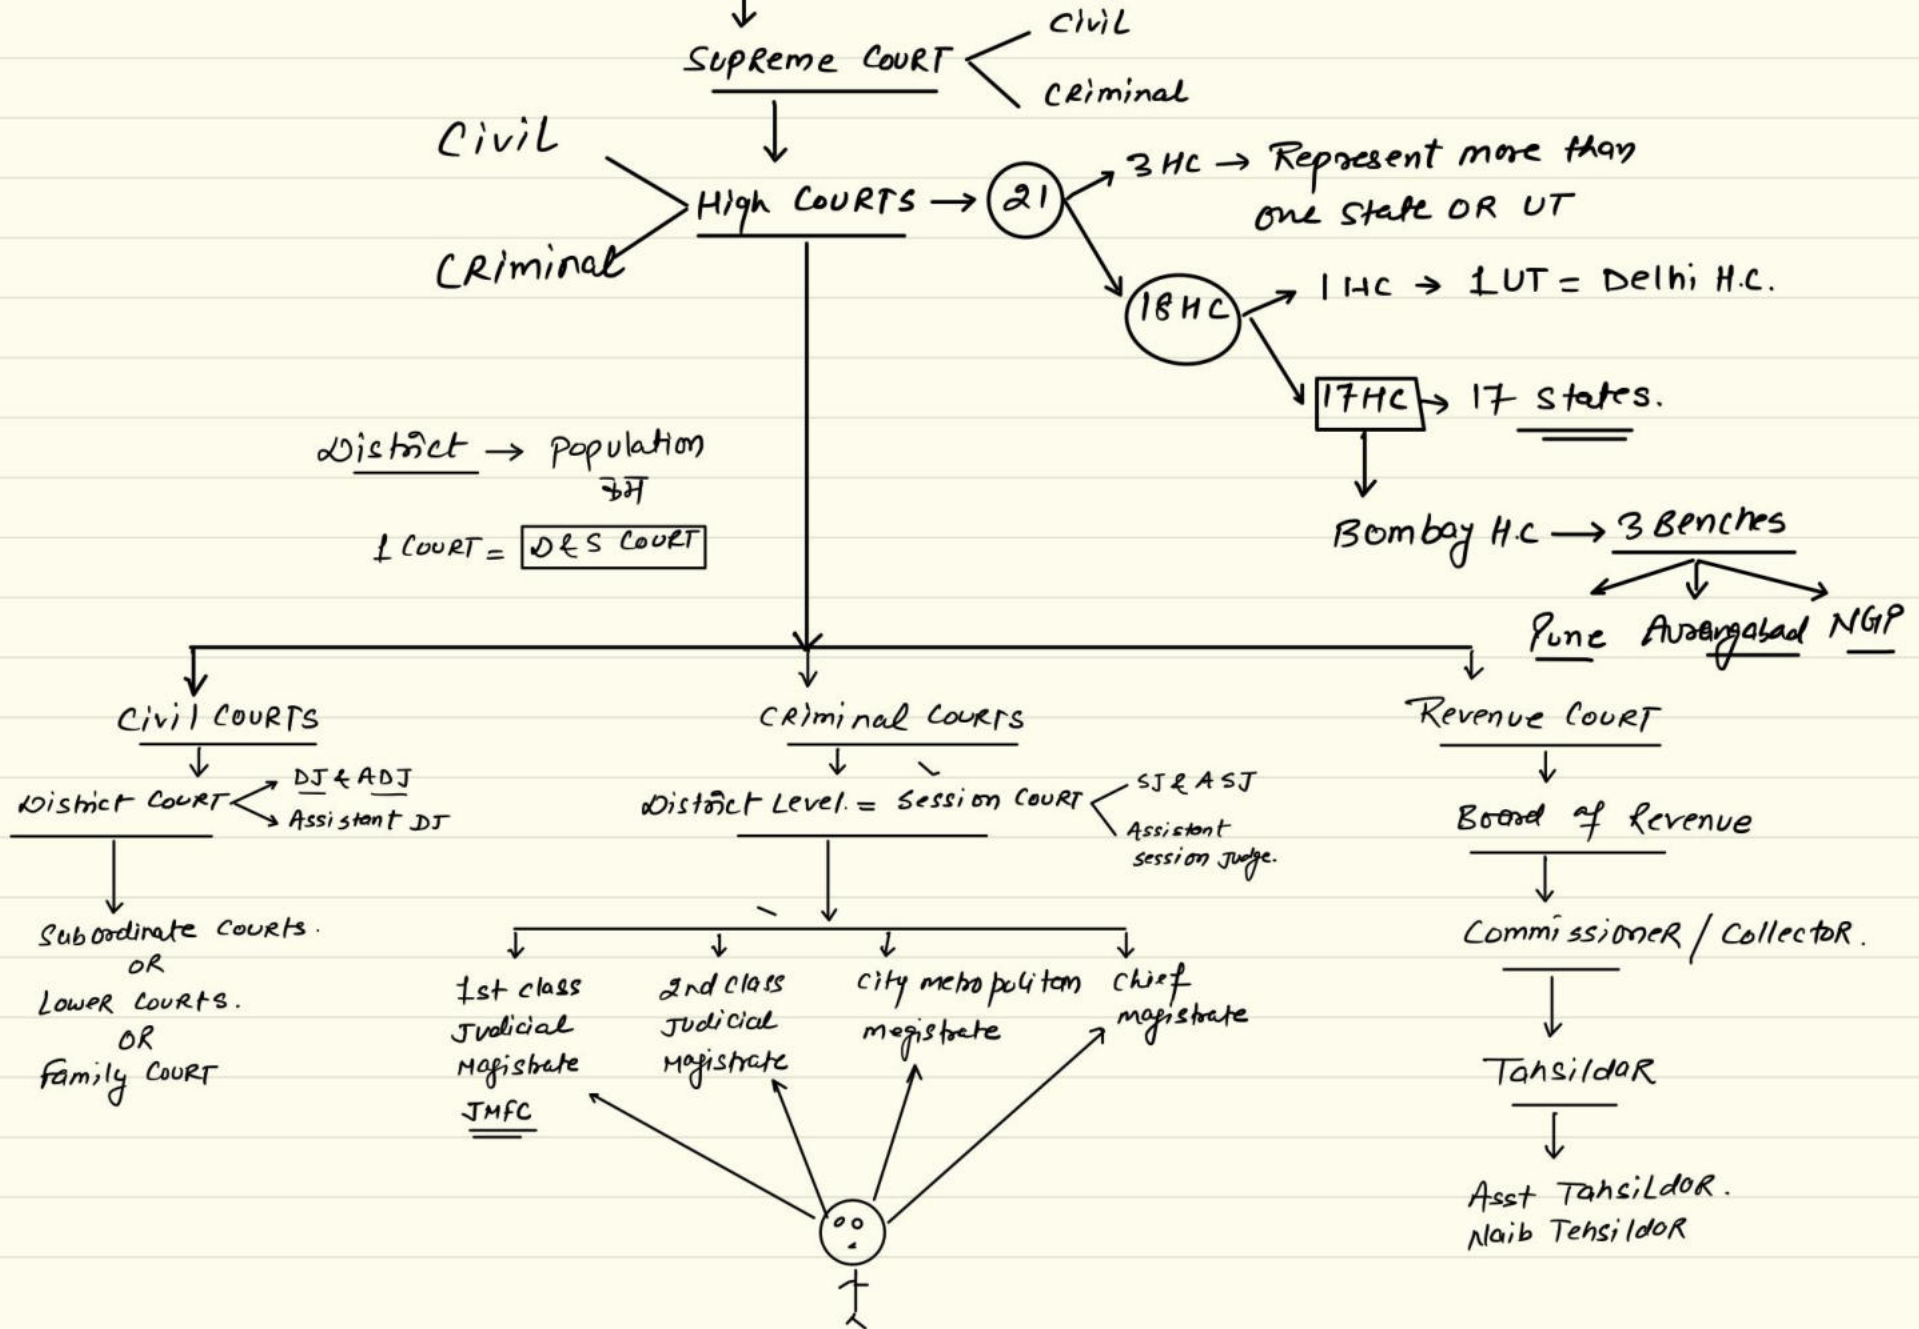 Civil
Supreme Court
Criminal
Civil
High Courts → 21
Criminal
3 HC → Represent more than
one state OR UT
18 HC
1 HC → 1 UT = Delhi H.C.
17 HC → 17 states.
Bombay H.C → 3 Benches
Pune Aurangabad NGP
District → Population
कम
1 Court = D & S Court
Civil Courts
District Court
DJ & ADJ
Assistant DJ
Subordinate Courts.
OR
Lower Courts.
OR
Family Court
Criminal Courts
District Level. = Session Court
SJ & ASJ
Assistant
Session Judge.
1st class
Judicial
Magistrate
JMFC
2nd class
Judicial
Magistrate
City metropolitan
megistrate
Chief
magistrate
Revenue Court
Board of Revenue
Commissioner / Collector.
Tahsildar
Asst Tahsildar.
Naib Tehsildar